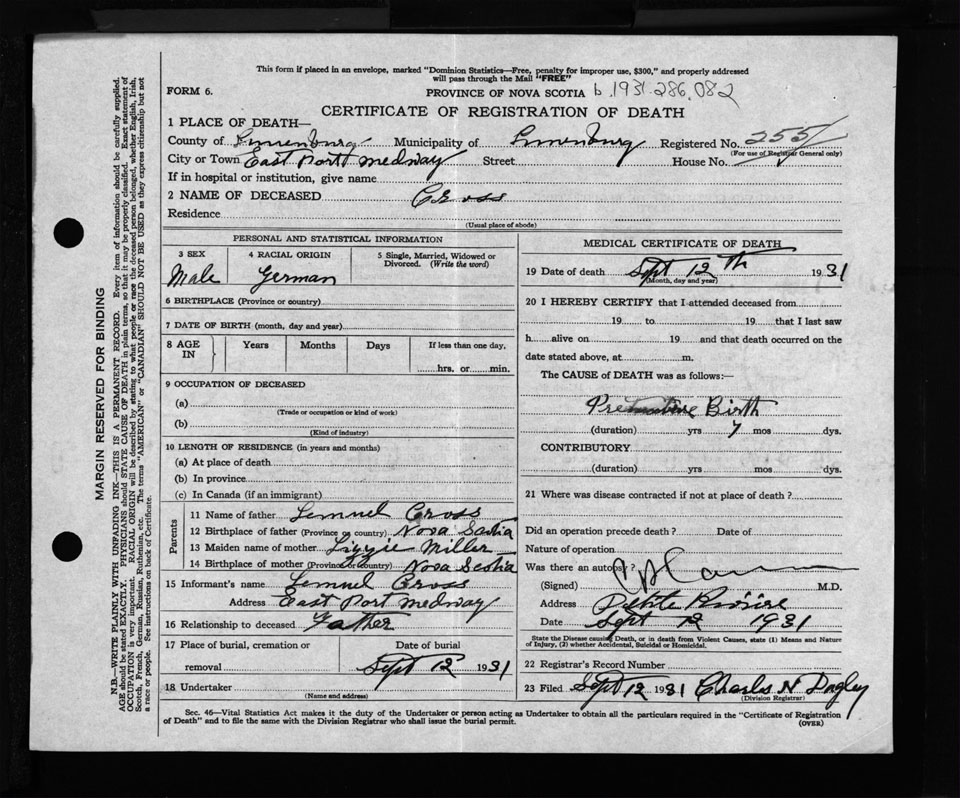 This form if placed in an envelope, marked "Dominion Statistics—Free, penalty for improper use, $300," and properly addressed
will pass through the Mail "FREE"
FORM 6.
PROVINCE OF NOVA SCOTIA b.1931.286,082
CERTIFICATE OF REGISTRATION OF DEATH
1 PLACE OF DEATH—
County of Lunenburg Municipality of Lunenburg Registered No. 255
(For use of Registrar General only)
City or Town East Port Medway Street House No.
If in hospital or institution, give name
2 NAME OF DECEASED Cross
Residence
(Usual place of abode)
PERSONAL AND STATISTICAL INFORMATION
3 SEX 4 RACIAL ORIGIN 5 Single, Married, Widowed or
Divorced. (Write the word)
Male German
6 BIRTHPLACE (Province or country)
7 DATE OF BIRTH (month, day and year)
8 AGE IN Years Months Days If less than one day,
hrs. or min.
9 OCCUPATION OF DECEASED
(a)
(Trade or occupation or kind of work)
(b)
(Kind of industry)
10 LENGTH OF RESIDENCE (in years and months)
(a) At place of death
(b) In province
(c) In Canada (if an immigrant)
Parents
11 Name of father Lemuel Cross
12 Birthplace of father (Province or country) Nova Scotia
13 Maiden name of mother Lizzie Miller
14 Birthplace of mother (Province or country) Nova Scotia
15 Informant's name Lemuel Cross
Address East Port Medway
16 Relationship to deceased Father
17 Place of burial, cremation or Date of burial
removal Sept 12 1931
18 Undertaker
(Name and address)
MEDICAL CERTIFICATE OF DEATH
19 Date of death Sept 12th 1931
(Month, day and year)
20 I HEREBY CERTIFY that I attended deceased from
19 to 19 that I last saw
h alive on 19 and that death occurred on the
date stated above, at m.
The CAUSE of DEATH was as follows:—
Premature Birth
(duration) yrs 7 mos dys.
CONTRIBUTORY
(duration) yrs mos dys.
21 Where was disease contracted if not at place of death?
Did an operation precede death? Date of
Nature of operation
Was there an autopsy?
(Signed) M.D.
Address Petite Riviere
Date Sept 12 1931
State the Disease causing Death, or in death from Violent Causes, state (1) Means and Nature
of Injury, (2) whether Accidental, Suicidal or Homicidal.
22 Registrar's Record Number
23 Filed Sept 12 1931 Charles N Dagley
(Division Registrar)
Sec. 46—Vital Statistics Act makes it the duty of the Undertaker or person acting as Undertaker to obtain all the particulars required in the "Certificate of Registration
of Death" and to file the same with the Division Registrar who shall issue the burial permit. (OVER)
MARGIN RESERVED FOR BINDING
N.B.—WRITE PLAINLY WITH UNFADING INK—THIS IS A PERMANENT RECORD. Every item of information should be carefully supplied.
AGE should be stated EXACTLY. PHYSICIANS should STATE CAUSE OF DEATH in plain terms, so that it may be properly classified. Exact statement of
OCCUPATION is very important. RACIAL ORIGIN will be described by stating to what people or race the deceased person belonged, whether English, Irish,
Scotch, French, German, Russian, Ruthenian, etc. The terms "AMERICAN" or "CANADIAN" SHOULD NOT BE USED as they express citizenship but not
a race or people. See instructions on back of Certificate.